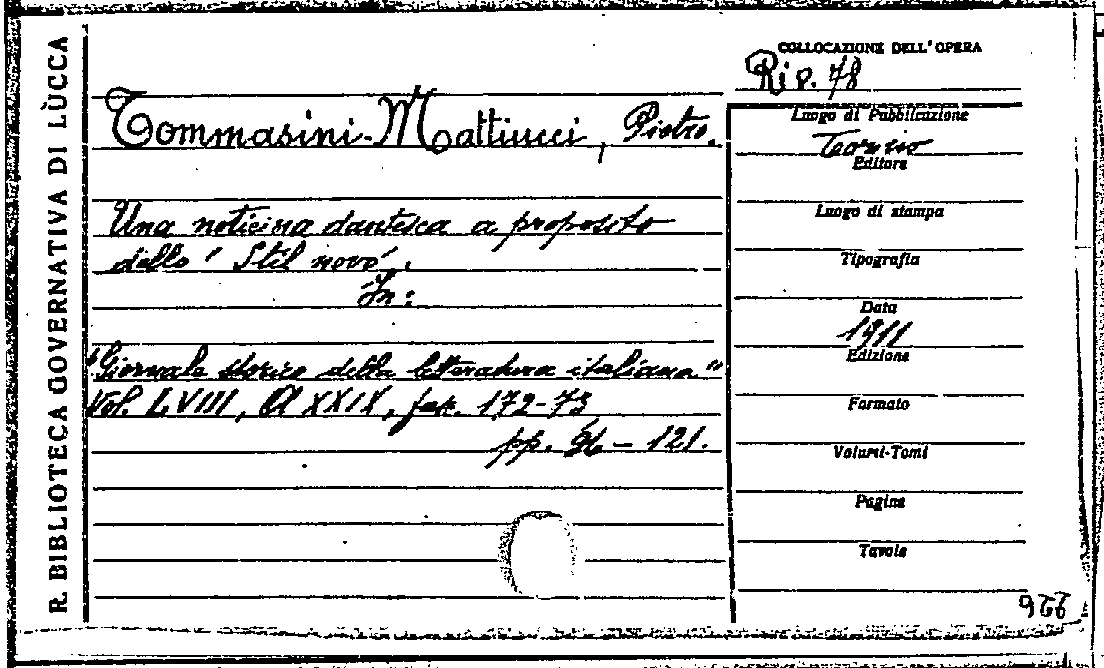 R. BIBLIOTECA GOVERNATIVA DI LUCCA
COLLOCAZIONE DELL'OPERA
Tommasini-Mattiucci, Pietro.
Una noticina dantesca a proposito
dello "Stil novo".
In:
"Giornale storico della letteratura italiana"
Vol. LVIII, A XXIX, fasc. 172-73
pp. – 121.
Luogo di Pubblicazione
Torino
Editore
Luogo di stampa
Tipografia
Data
1911
Edizione
Formato
Volumi-Tomi
Pagine
Tavole